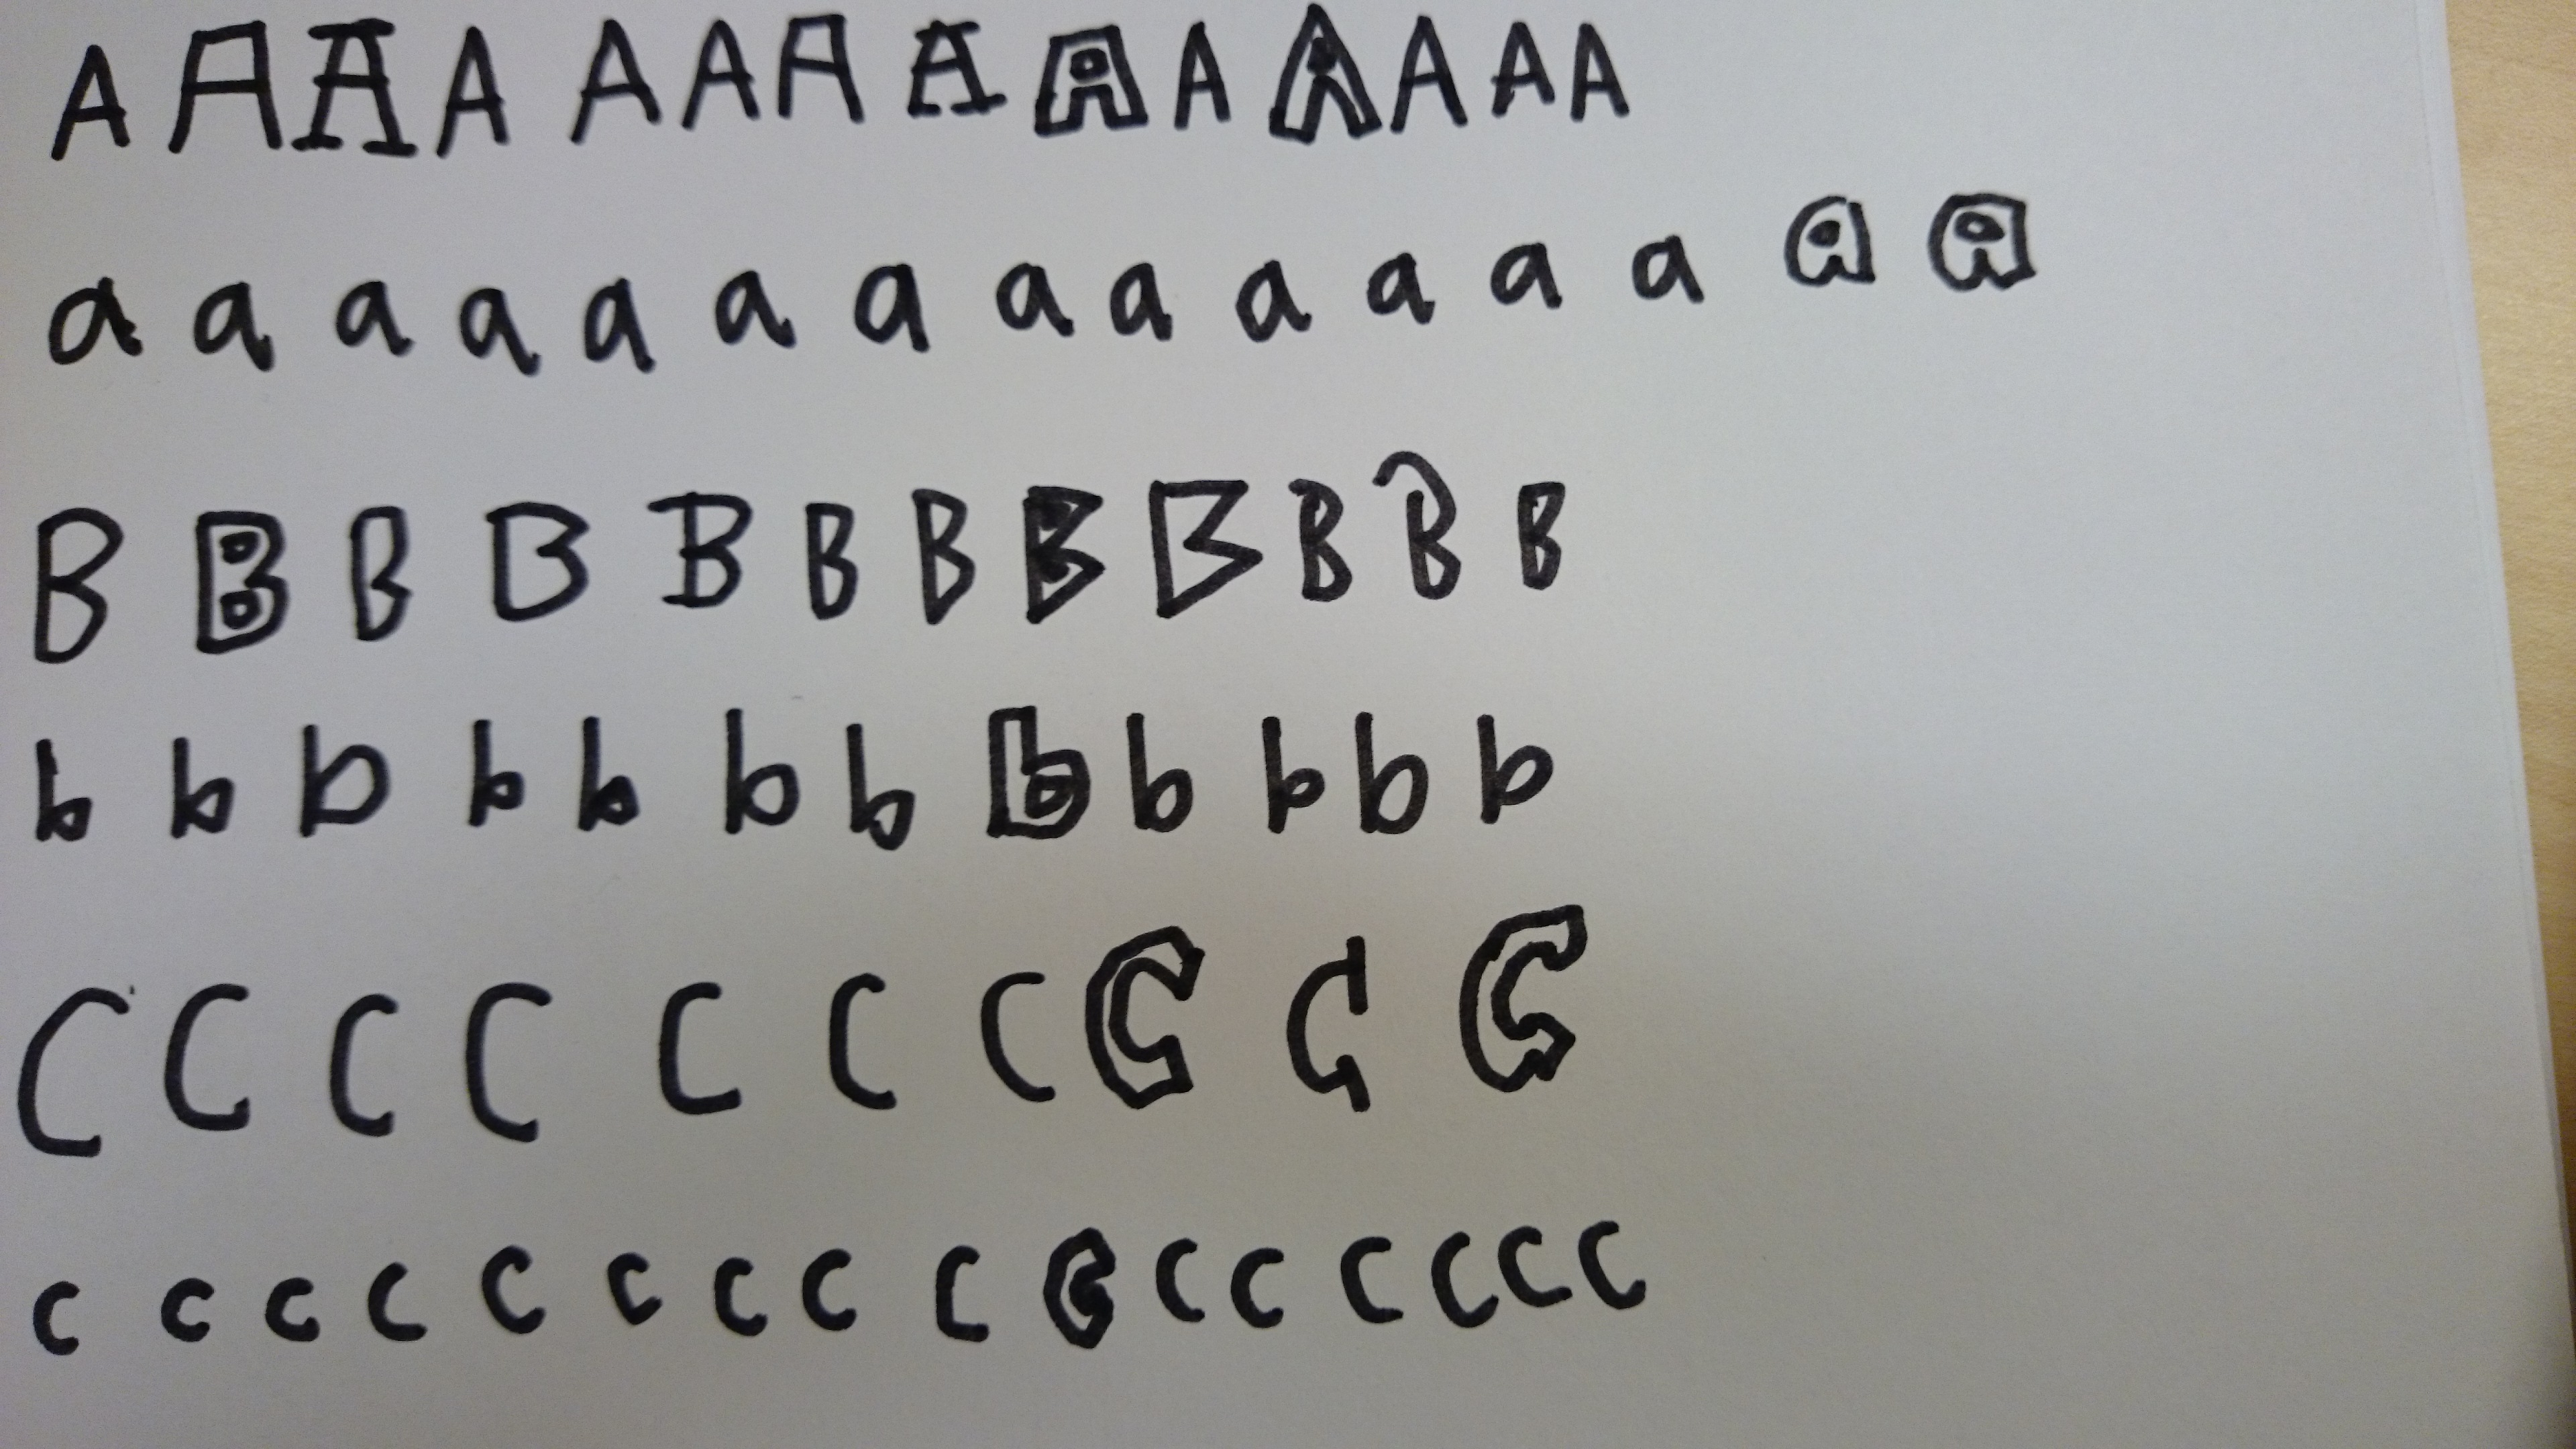 A A A A A A A A A A A A A A
a a a a a a a a a a a a a a a
B B B B B B B B B B B B
b b b b b b b b b b b b
C C C C C C C C C C
c c c c c c c c c c c c c c c c